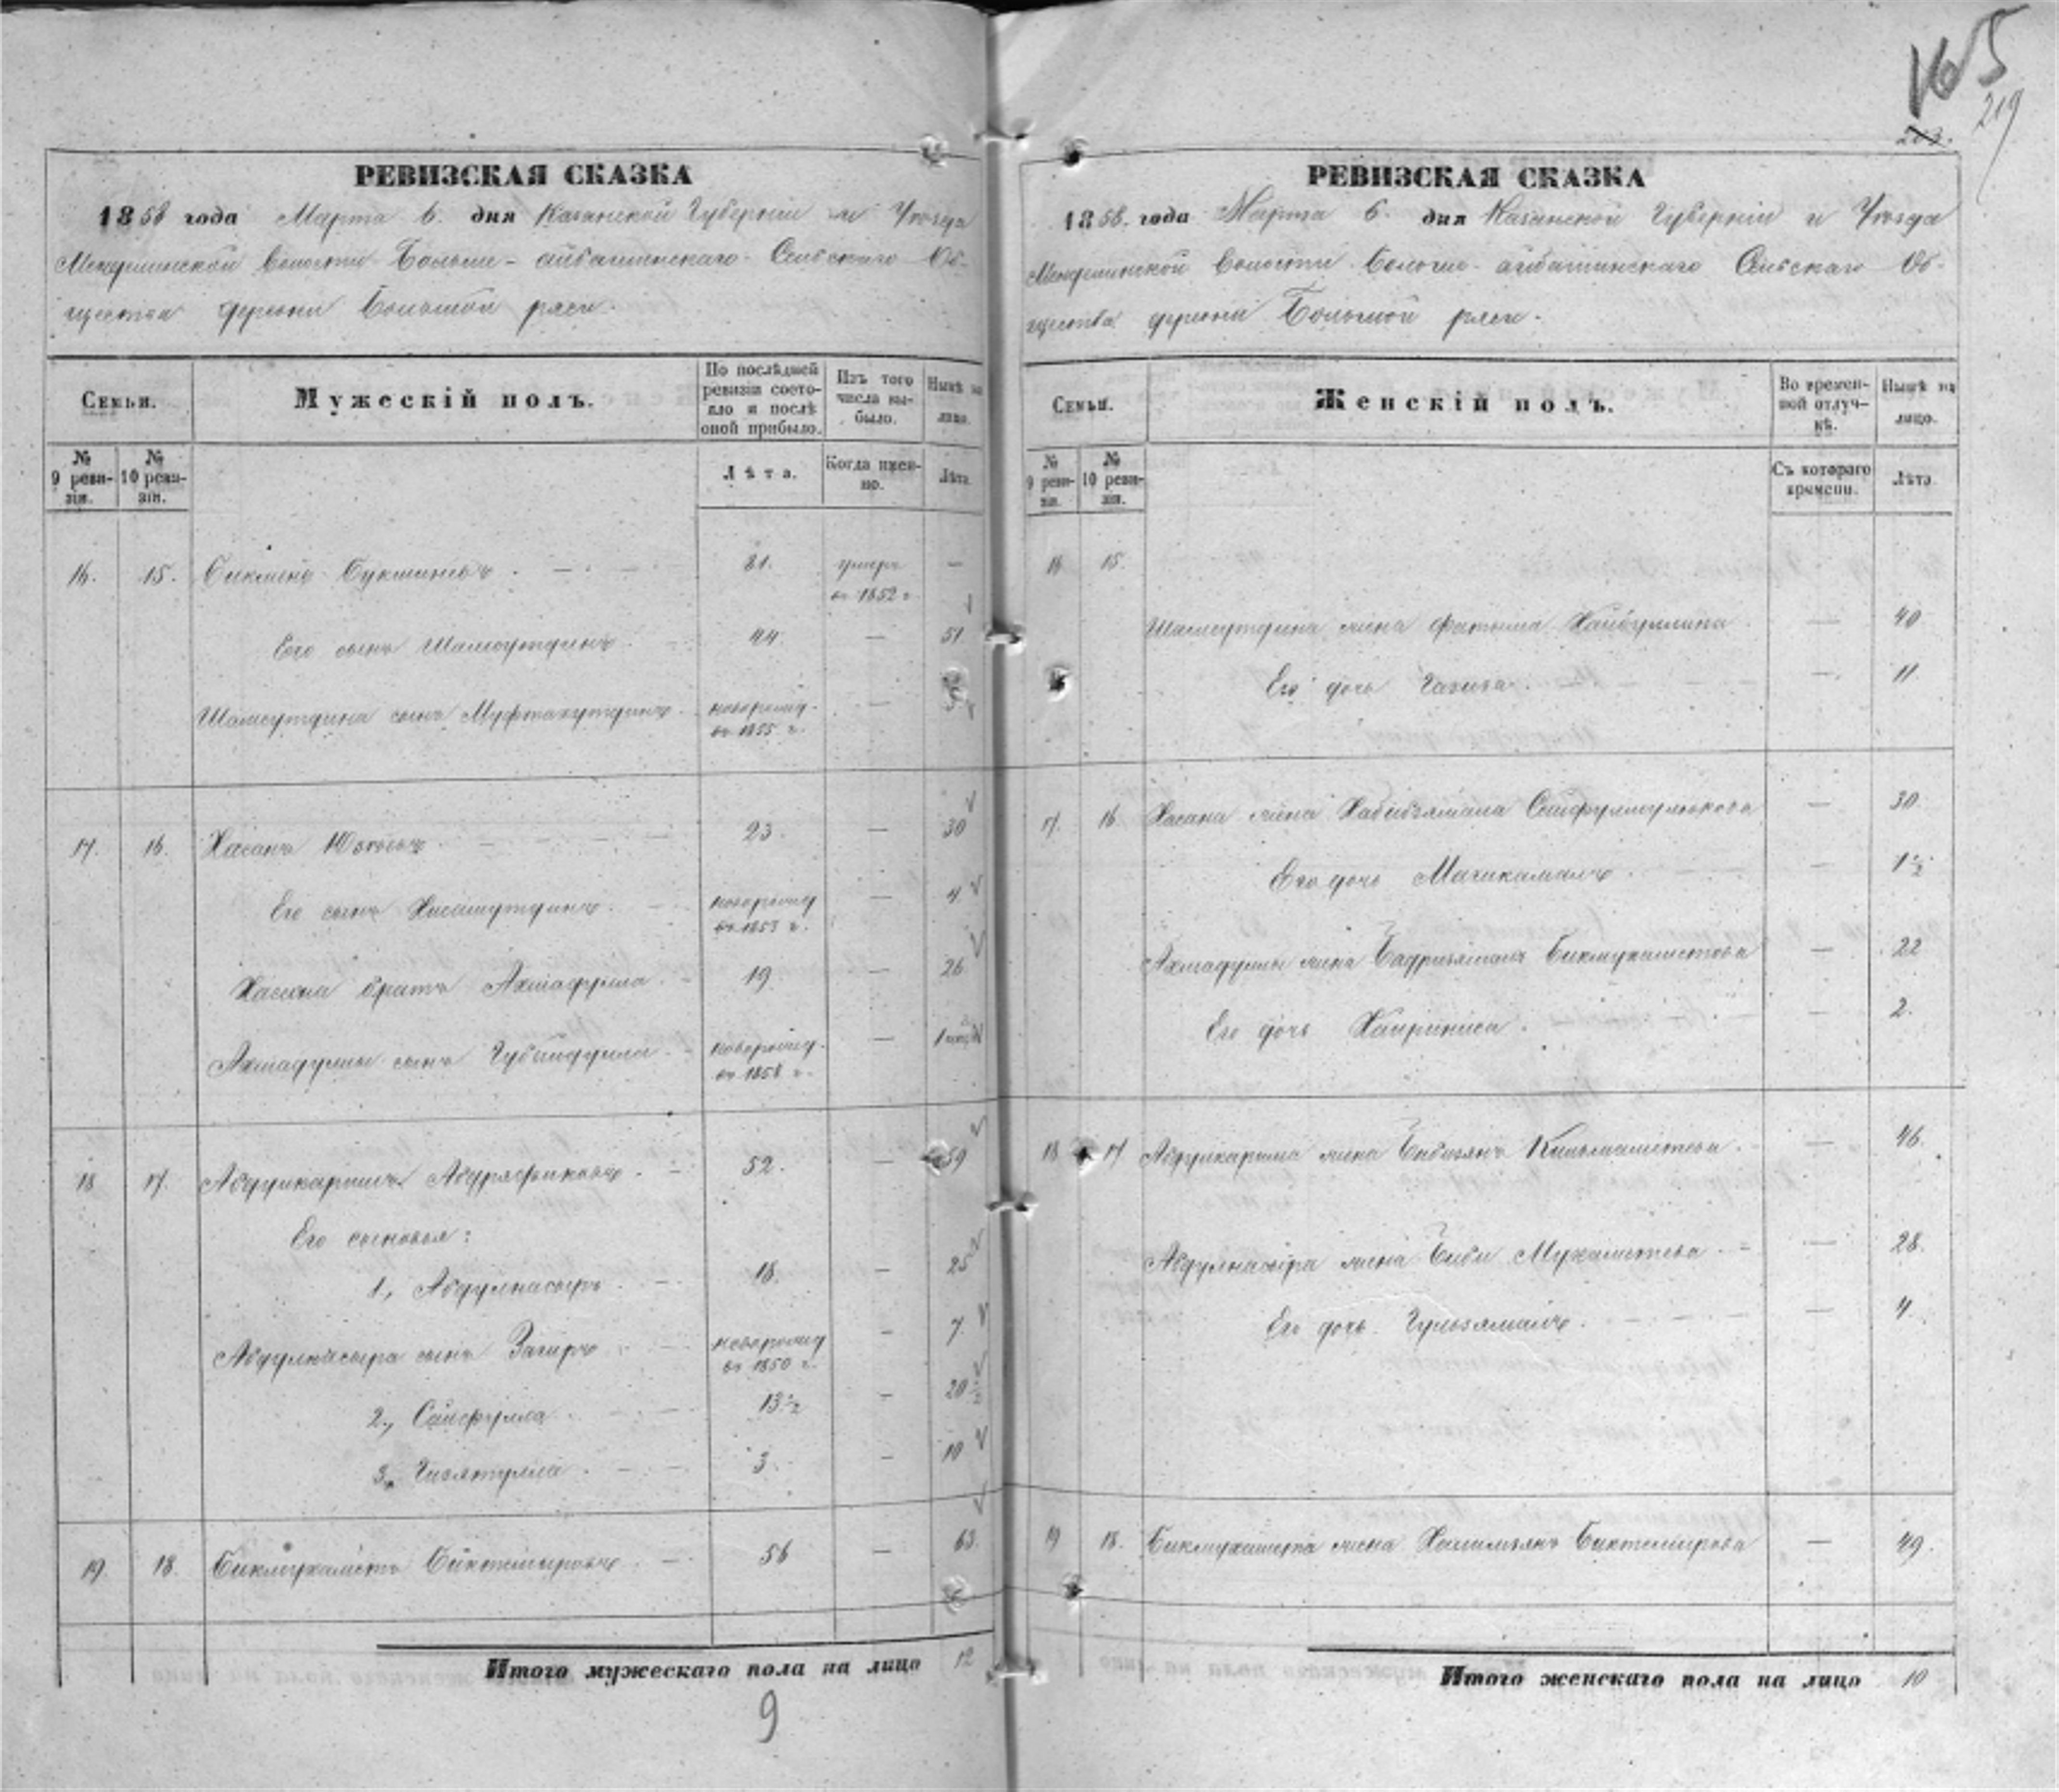 165
219
203.
РЕВИЗСКАЯ СКАЗКА
1858 года Марта 6. дня Казанской Губерніи и Уѣзда
волости Больше-айбашинскаго Сельскаго Об-
щества деревни Большой ряси.
Семьи.
Мужескій полъ.
По послѣдней ревизіи состо-
яло и послѣ оной прибыло.
Изъ того числа вы-
было.
Нынѣ на лицо.
№ 9 реви-
зіи.
№ 10 реви-
зіи.
Лѣта.
Когда имен-
но.
Лѣта.
16. 15. 81. умеръ —
въ 1852 г.
Его сынъ Шамсутдинъ. 44. — 51.
Шамсутдина сынъ Муфтахутдинъ. новорожд. — 3
въ 1855 г.
17. 16. Хасанъ 23. — 30
Его сынъ Хисамутдинъ. новорожд — 4
въ 1853 г.
Хасана братъ Ахмадулла. 19. — 26
Ахмадуллы сынъ Губайдулла. новорожд. — 1
въ 1858 г.
18 17. Абдулкаримъ Абдряфиковъ. 52. — 59
Его сыновья:
1., Абдулнасыръ. 18. — 25
Абдулнасыра сынъ Загиръ новорожд — 7
въ 1850 г.
2., Сайфулла. 13½ — 20
3., Гизятулла. 3. — 10
19. 18. Бикмухаметь Биктемировъ. 56 — 63.
Итого мужескаго пола на лицо 12
9
РЕВИЗСКАЯ СКАЗКА
1858. года Марта 6. дня Казанской Губерніи и Уѣзда
волости Больше-айбашинскаго Сельскаго Об-
щества деревни Большой ряси.
Семьи.
Женскій полъ.
Во времен-
ной отлуч-
кѣ.
Нынѣ на лицо.
№ 9 реви-
зіи.
№ 10 реви-
зіи.
Съ котораго времени.
Лѣта
16 15.
Шамсутдина жена Фатыма Хайбуллина — 40
Его дочь Газиза. — 11.
17. 16. Хасана жена — 30.
Его дочь Магикамалъ. — 1½
Ахмадуллы жена Бадризямалъ Бикмухаметова — 22
Его дочь Хайриниса. — 2.
18 17 Абдулкарима жена — 46.
Абдулнасыра жена Биби Мухаметева. — 28.
Его дочь Гульзямалъ. — 4.
19 18. Бикмухамета жена Биктемирова — 49.
Итого женскаго пола на лицо 10